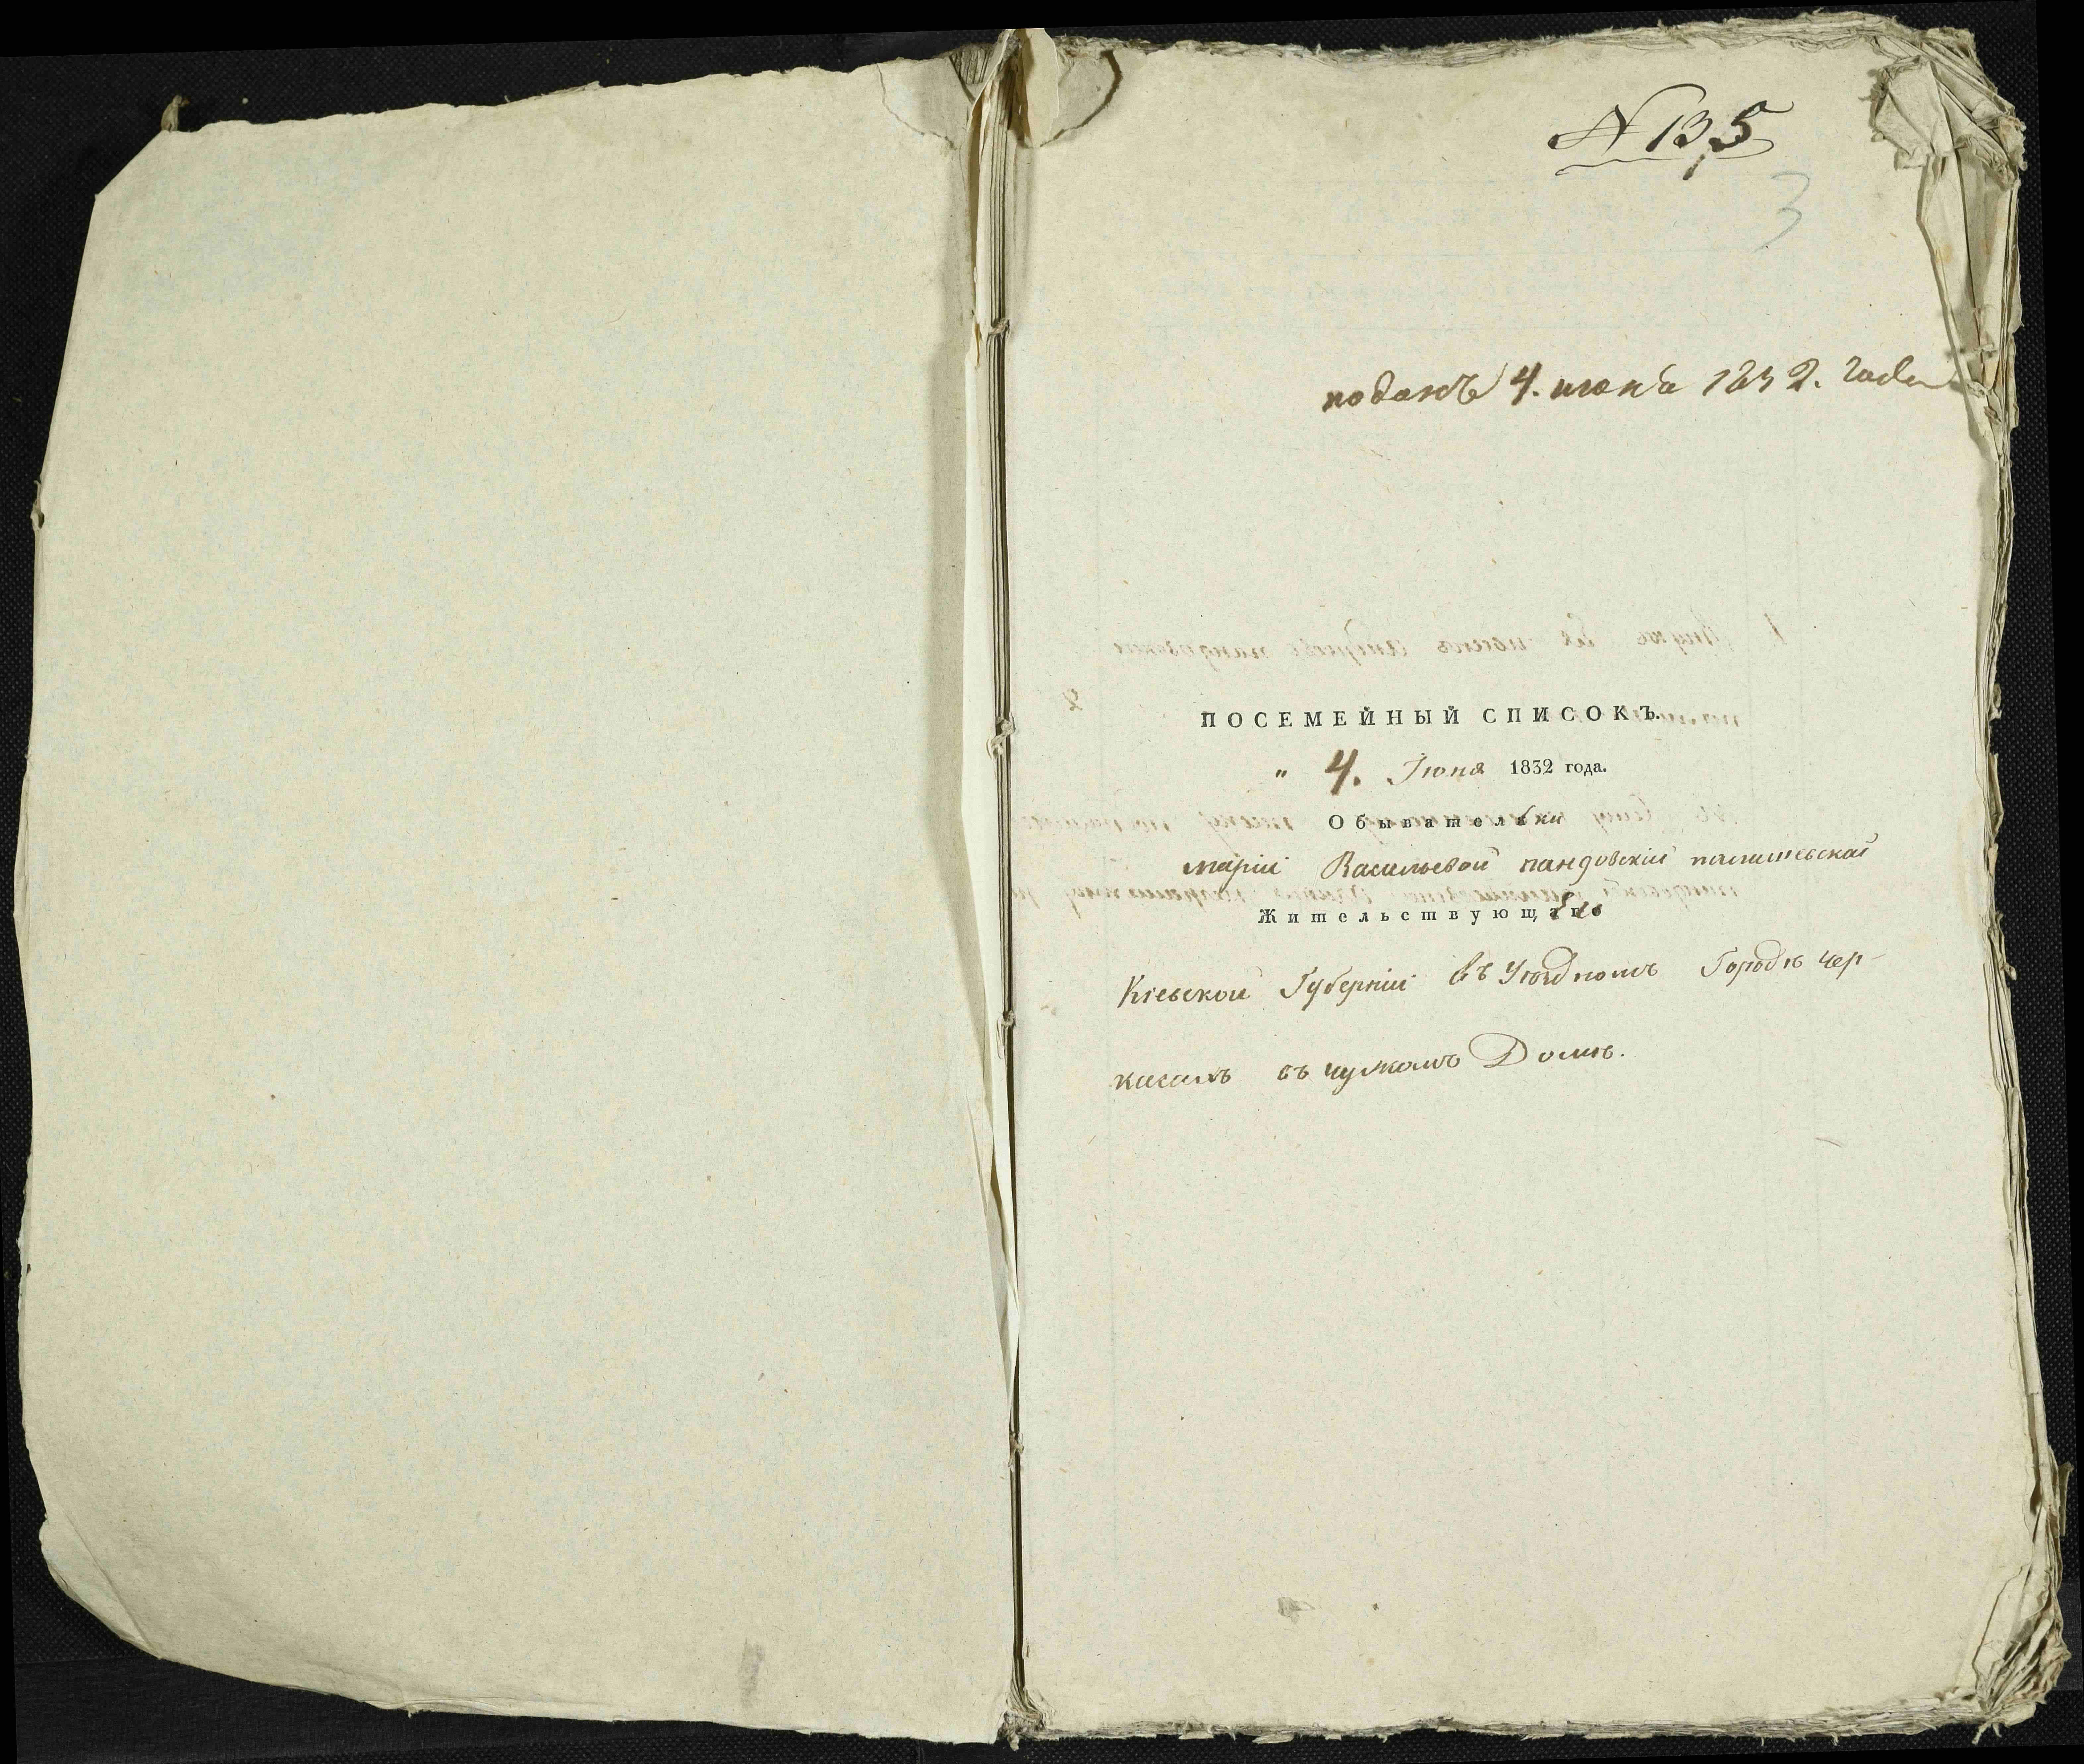 № 135
3
поданъ 4. июня 1832. года
ПОСЕМЕЙНЫЙ СПИСОКЪ.
" 4. Июня 1832 года.
Обывательки
марии Васильевой пандовский
Жительствующаго
Кіевской Губерніи въ Уѣздномъ Городѣ Чер-
касахъ въ чужомъ Домѣ.